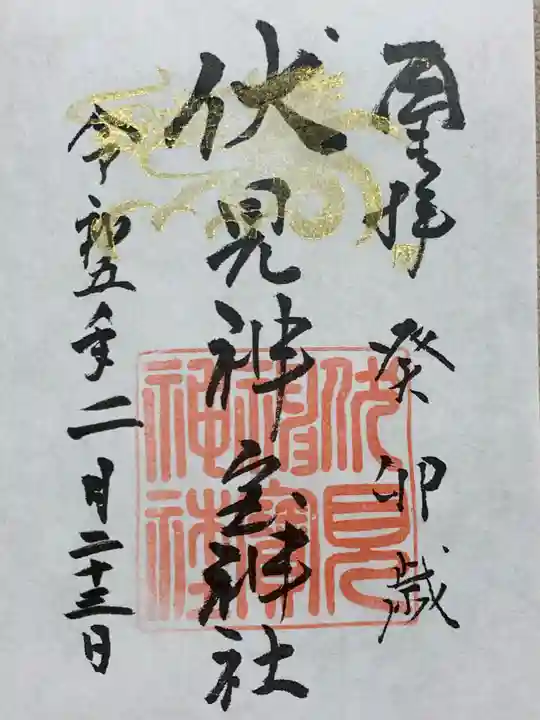 奉拝 癸卯歳
伏見神宝神社
伏見
神寳
神社
令和五年二月二十三日